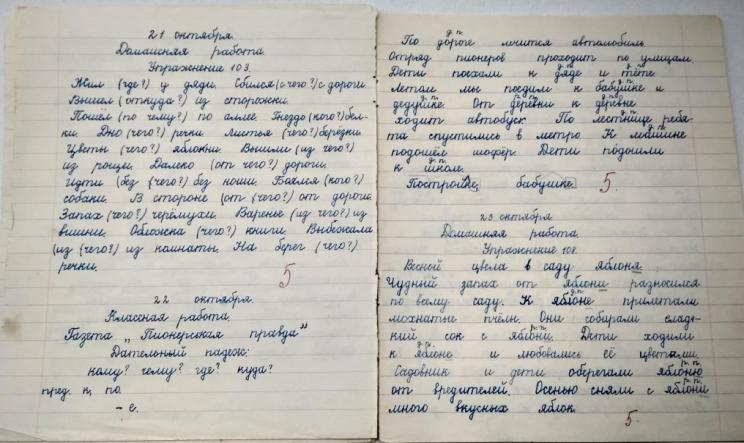 21 октября.
Домашняя работа.
Упражнение 103.
Жил (где?) у дяди. Сбился (с чего?) с дороги.
Вышел (откуда?) из сторожки.
Пошёл (по чему?) по аллее. Гнездо (кого?) бел-
ки. Дно (чего?) речки. Листья (чего?) берёзки.
Цветы (чего?) яблони. Вышли (из чего?)
из рощи. Далеко (от чего?) дороги.
Идти (без (чего?) без ноши. Боялся (кого?)
собаки. В стороне (от (чего?) от дороги.
Запах (чего?) черёмухи. Варенье (из чего?) из
вишние. Обложка (чего?) книги. Выбежала
(из (чего?) из комнаты. На берег (чего?)
речки.
5
22 октября.
Классная работа.
Газета „Пионерская правда"
Дательный падеж:
кому? чему? где? куда?
пред. к, по.
- е.
д.п.
По дороге мчится автомобиль.
Отряд пионеров проходит по улицам.
д.п. д.п.
Дети поехали к дяде и тёте.
д.п.
Летом мы поедим к бабушке и
р.п. д.п.
дедушке. От деревни к деревне
д.п.
ходит автобуск. По лестнице ребя-
д.п.
та спустились в метро. К машине
подошёл шофёр. Дети подошли
д.п.
к школе.
Постройке, бабушке. 5.
23 октября.
Домашняя работа.
Упражнение 108.
Весной цвела в саду яблоня.
Чудный запах от яблони разносился
д.п.
по всему саду. К яблоне прилетали
мохнатые пчёлы. Они собирали слад-
р.п.
кий сок с яблони. Дети ходили
д.п.
к яблоне и любовались её цветами.
Садовник и дети оберегали яблоню
р.п.
от вредителей. Осенью сняли с яблони
много вкусных яблок.
5.